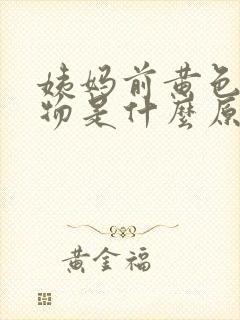 姨妈前黄色
物是什麼原
黄金福